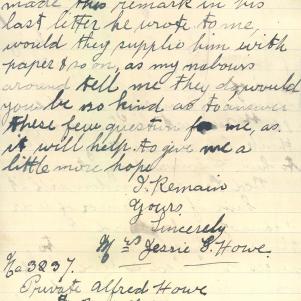 made this remark in his
last letter he wrote to me,
would they supplie him with
paper & so on, as my nabours
around tell me they do, would
you be so kind as to answer
these few question for me, as
it will help to give me a
little more hope
I. Remain
Yours
Sincerely
Mrs Jessie G. Howe.
No 3237.
Private Alfred Howe